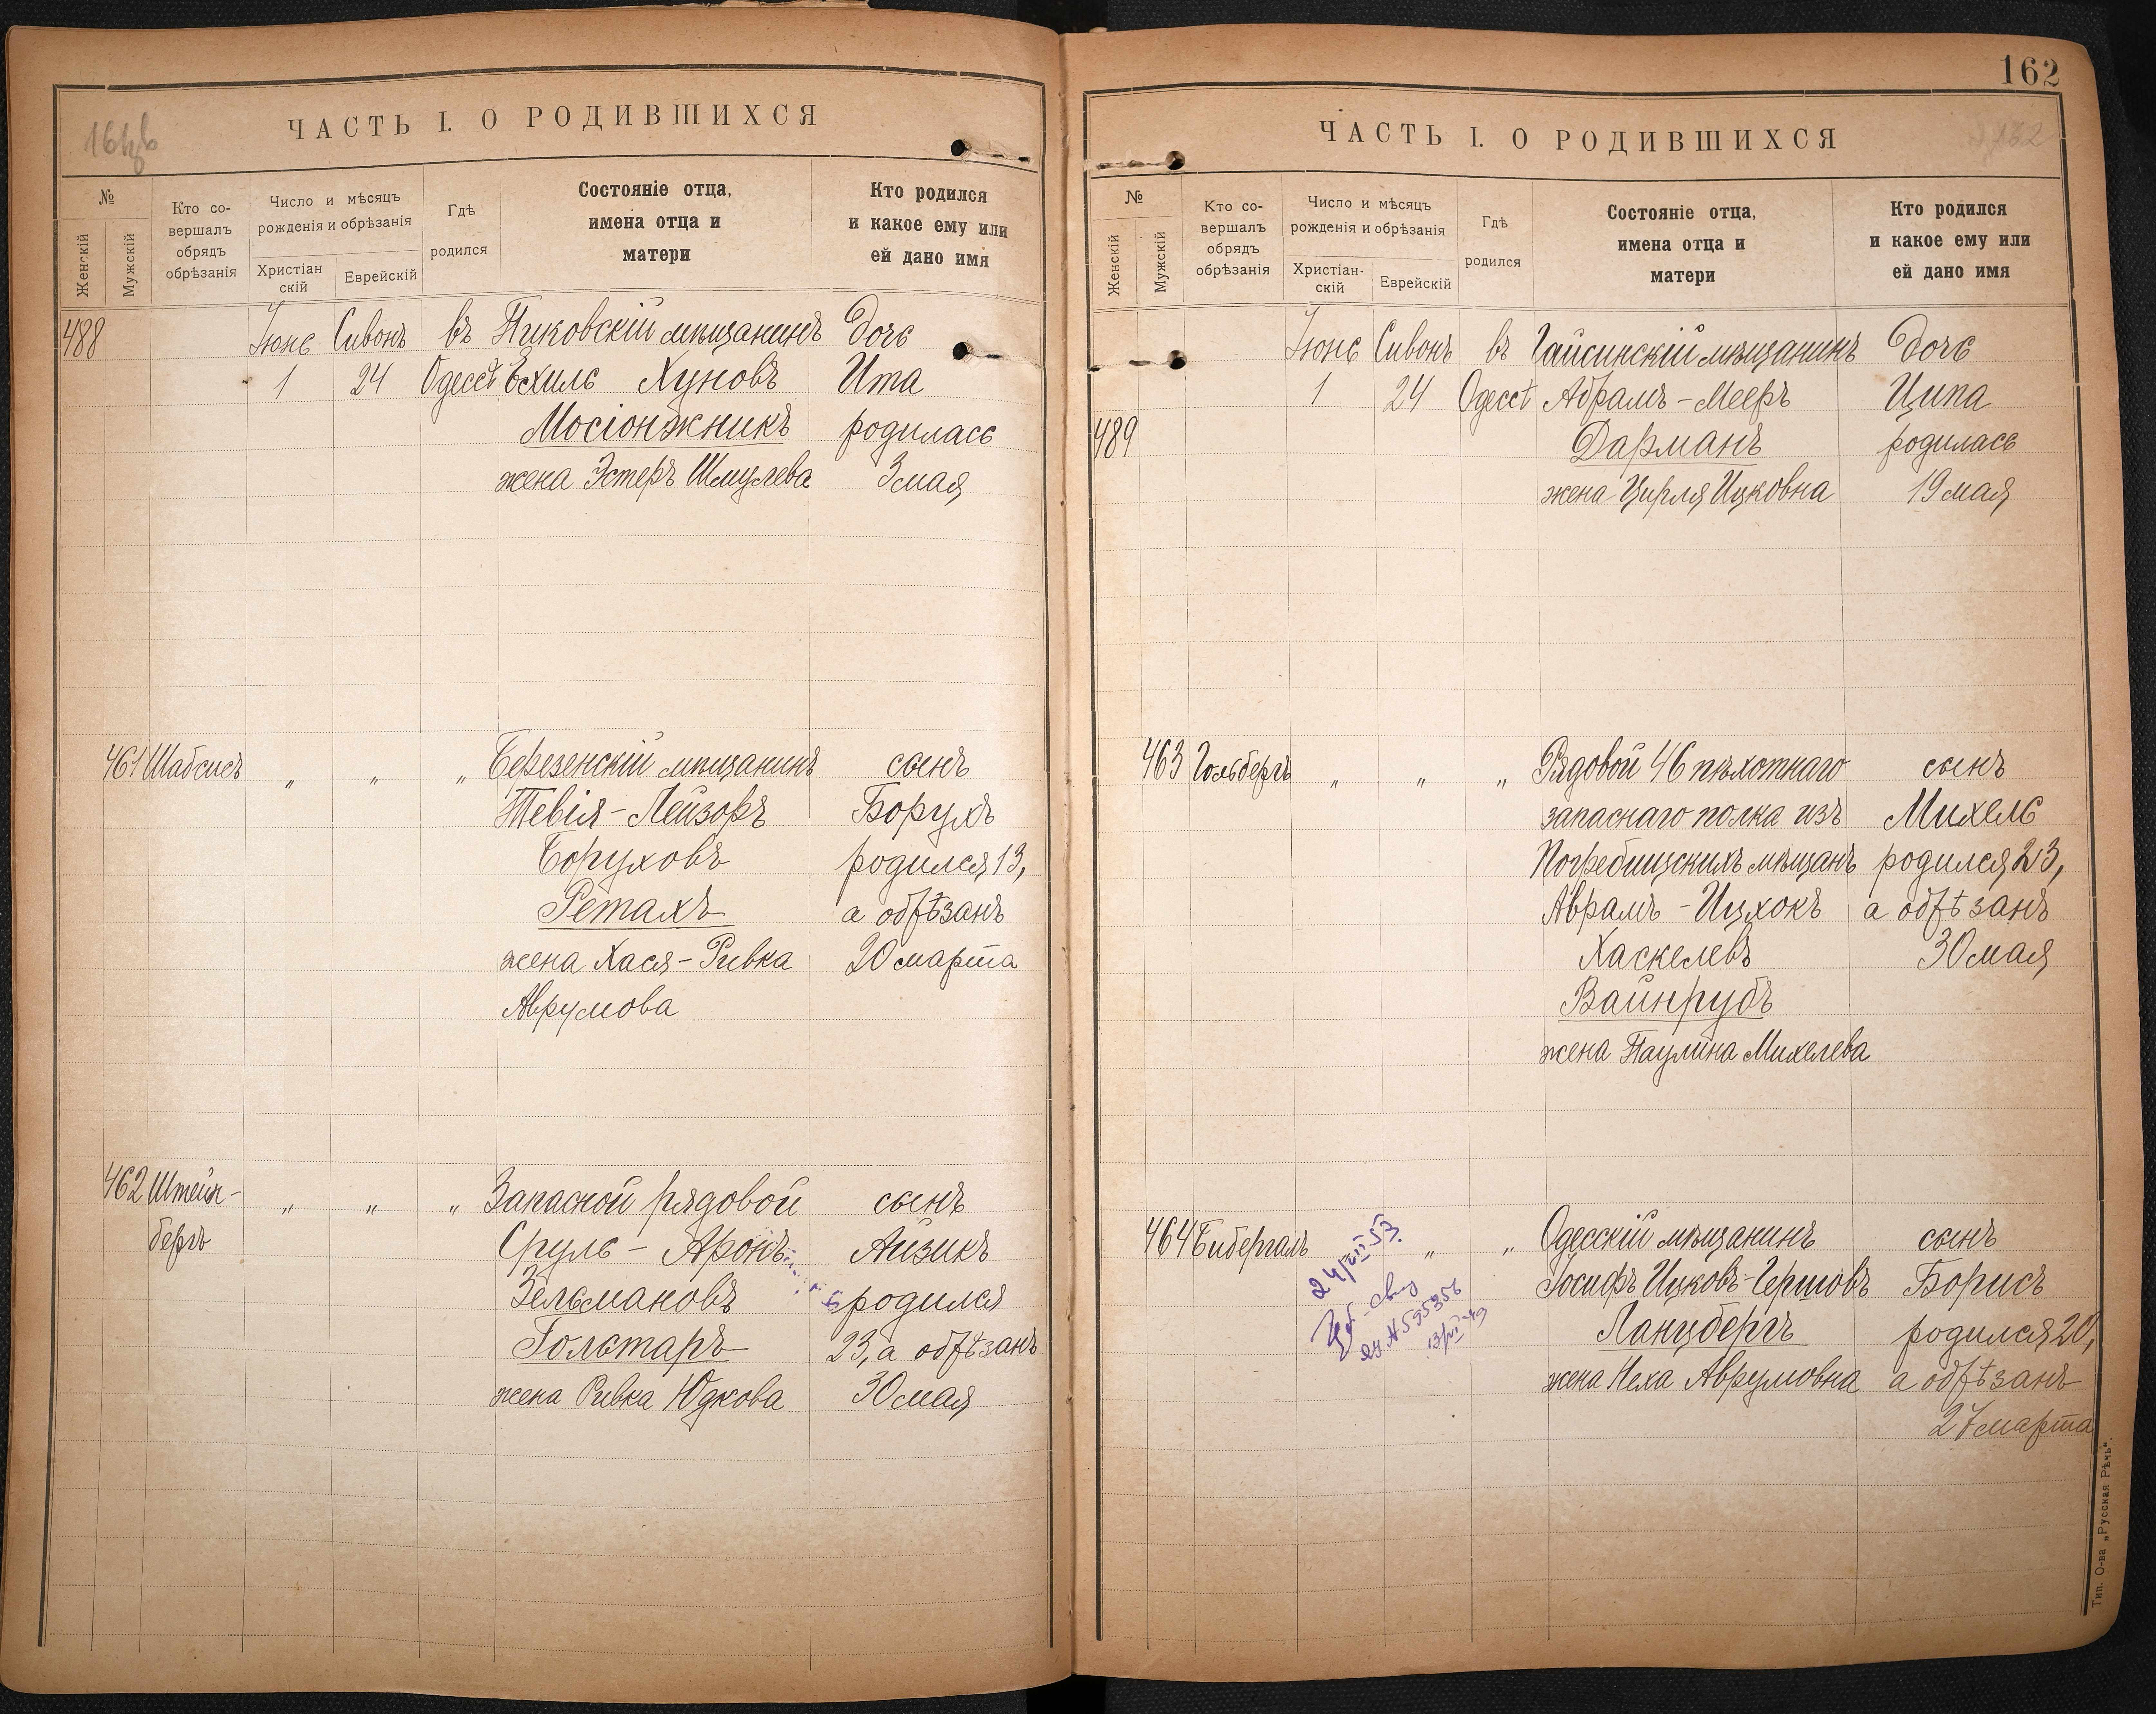 161об
ЧАСТЬ I. О РОДИВШИХСЯ
№
Женскій
Мужскій
Кто со-
вершалъ
обрядъ
обрѣзанія
Число и мѣсяцъ
рожденія и обрѣзанія
Христіан
скій
Еврейскій
Гдѣ
родился
Состояніе отца,
имена отца и
матери
Кто родился
и какое ему или
ей дано имя
488 Іюнь Сивонъ въ Пиковскій мѣщанинъ дочь
1 24 Одессѣ Ехиль Хуновъ Ита
Мосіонжникъ родилась
жена Эстеръ Шмулева 3 мая
461 Шабсисъ " " " Березенскій мѣщанинъ сынъ
Тевія-Лейзоръ Борухъ
Боруховъ родился 13,
Ретахъ а обрѣзанъ
жена Хася-Ривка 20 марта
Аврумова
462 Штейн- " " " Запасной рядовой сынъ
бергъ Сруль - Аронъ Айзикъ
Зельмановъ родился
Голстаръ 23, а обрѣзанъ
жена Ривка Юдкова 30 мая
162
ЧАСТЬ I. О РОДИВШИХСЯ
№
Женскій
Мужскій
Кто со-
вершалъ
обрядъ
обрѣзанія
Число и мѣсяцъ
рожденія и обрѣзанія
Христіан-
скій
Еврейскій
Гдѣ
родился
Состояніе отца,
имена отца и
матери
Кто родился
и какое ему или
ей дано имя
Іюнь Сивонъ въ Гайсинскій мѣщанинъ дочь
1 24 Одессѣ Абрамъ-Мееръ Ципа
489 Дарманъ родилась
жена Цирля Ицковна 19 мая
463 Гольбергъ " " " Рядовой 46 пѣхотнаго сынъ
запаснаго полка изъ Михель
Погребищскихъ мѣщанъ родился 23,
Аврамъ-Ицхокъ а обрѣзанъ
Хаскелевъ 30 мая
Вайнрубъ
жена Паулина Михелева
464 Бибергаль " " Одесскій мѣщанинъ сынъ
Іосифъ Ицковъ-Гершовъ Борисъ
Ланцбергъ родился 20,
жена Неха Аврумовна а обрѣзанъ
27 марта
24/VII 53.
№ 595356
13/VI-49
Тип. О-ва „Русская Рѣчь".